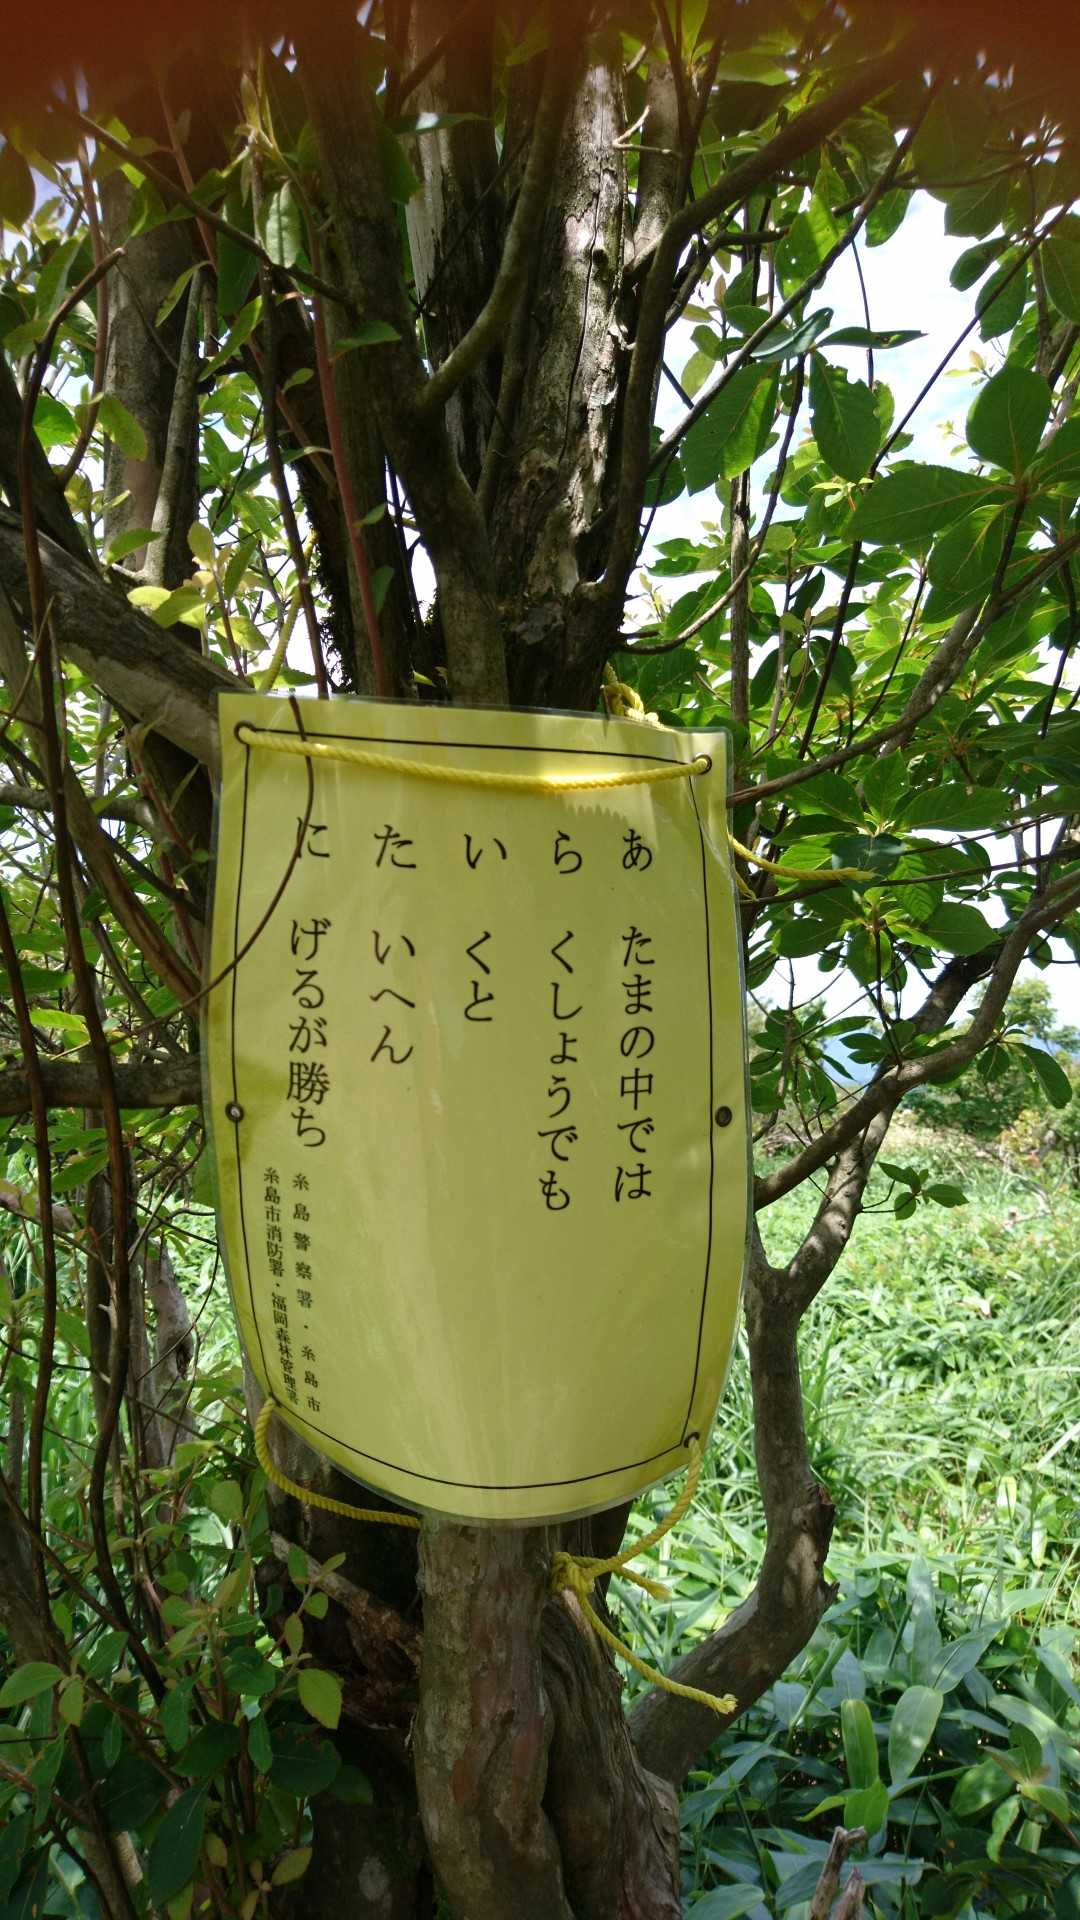 あ たまの中では
ら くしょうでも
い くと
た いへん
に げるが勝ち
糸島警察署・糸島市
糸島市消防署・福岡森林管理署